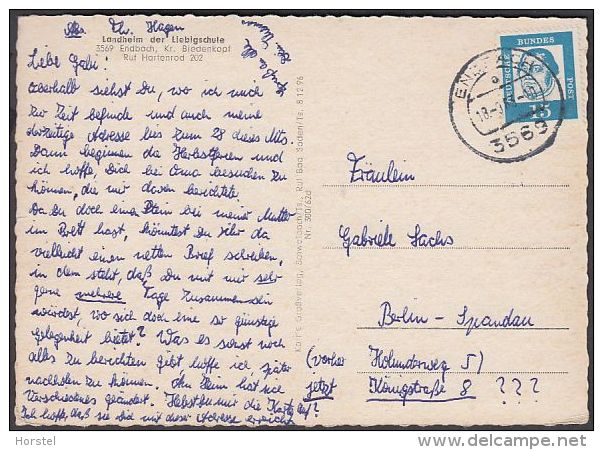 Abs. Chr. Hagen
Landheim der Liebigschule
3569 Endbach, Kr. Biedenkopf
Ruf Hartenrod 202
Liebe Gabi!
oberhalb siehst Du, wo ich mich
zur Zeit befinde und auch meine
derzeitige Adresse bis zum 28 dieses Mts.
Dann beginnen die Herbstferien und
ich hoffe, Dich bei Oma besuchen zu
können, die mir davon berichtete.
Da Du doch einen Stein bei meiner Mutter
im Brett hast, könntest Du ihr da
vielleicht einen netten Brief schreiben,
in dem steht, daß Du mit mir sehr
gerne mehrere Tage zusammen sein
würdest, wo sich doch eine so günstige
Gelegenheit bietet? Was es sonst noch
alles zu berichten gibt hoffe ich später
nachholen zu können. An Deinem hat sich
Verschiedenes geändert. Hebst Du mir die Karte auf?
Ich hoffe, daß sie Dich mit dieser Adresse erreicht
Nr. 380/62d
DEUTSCHE BUNDES POST
15
ENDBACH
3569
Fräulein
Gabriele Sachs
Berlin-Spandau
(vorher Holunderweg 5)
jetzt Königstraße 8 ???
Horstel
www.delcampe.net